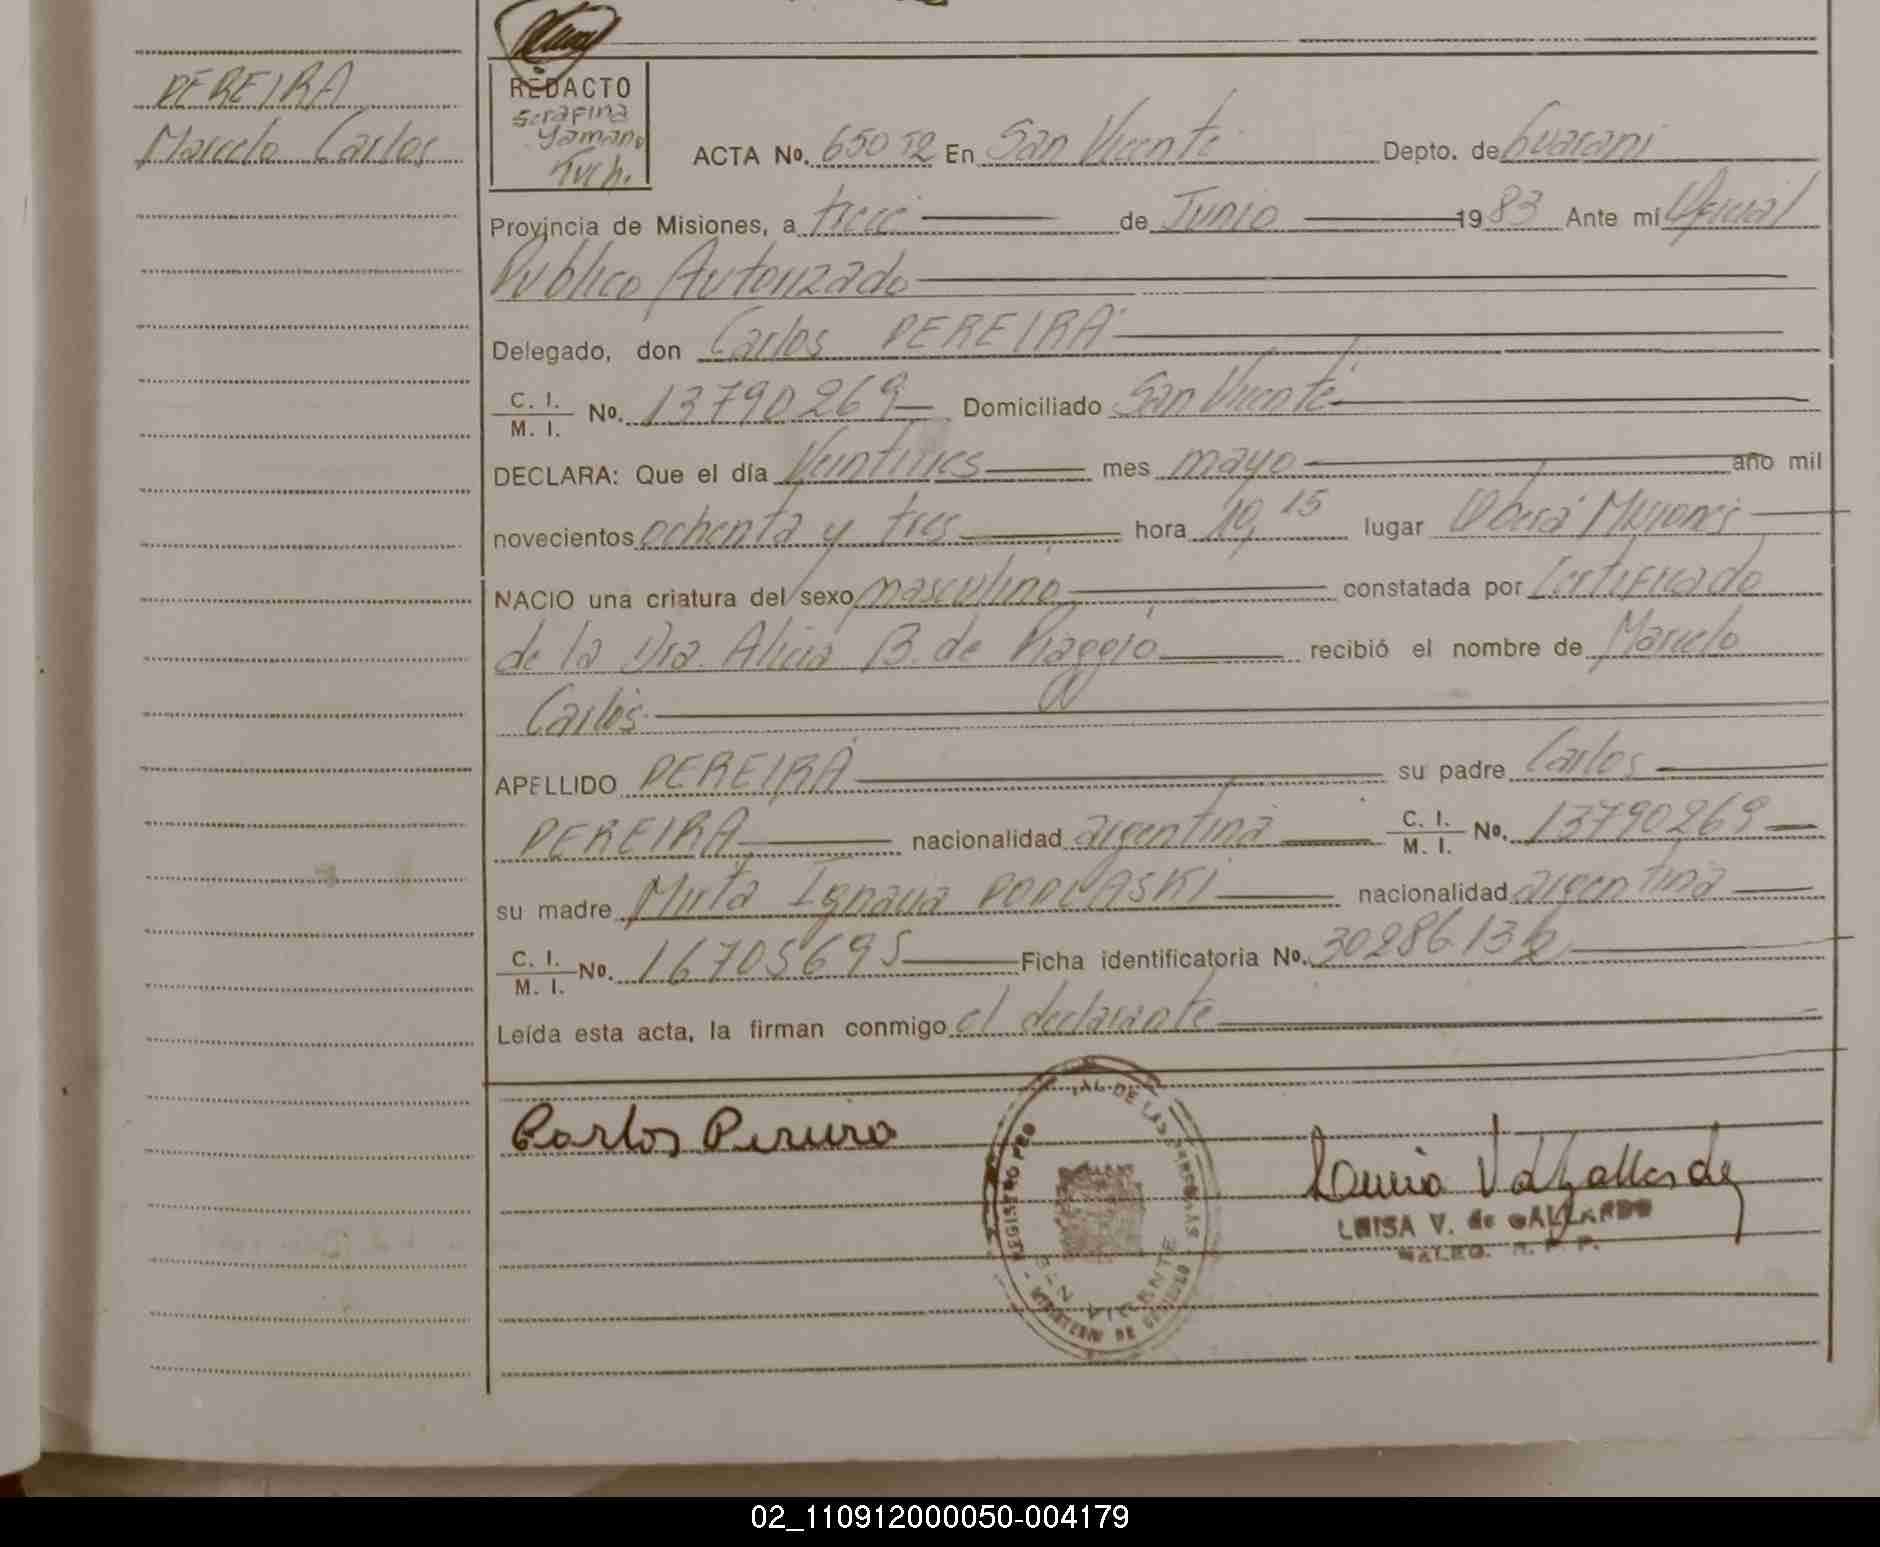 PEREIRA
Marcelo Carlos
REDACTO
Serafina
Yamano
Turh.
ACTA No. 65052 En San Vicente Depto. de Guarani
Provincia de Misiones, a trece de Junio 1983 Ante mí Oficial
Publico Autorizado
Delegado, don Carlos PEREIRA
C. I.
M. I. No. 13790269 Domiciliado San Vicente
DECLARA: Que el día Veintitres mes mayo año mil
novecientos ochenta y tres hora 19,15 lugar Oberá Misiones
NACIO una criatura del sexo masculino constatada por Certificado
de la Dra. Alicia B. de Piaggio recibió el nombre de Marcelo
Carlos
APELLIDO PEREIRA su padre Carlos
PEREIRA nacionalidad argentina C. I.
M. I. No. 13790269
su madre Mirta Ignacia PODLASKI nacionalidad argentina
C. I.
M. I. No. 16705695 Ficha identificatoria No. 30286136
Leída esta acta, la firman conmigo el declarante
Carlos Pereira
REGISTRO PRO AL DE LAS PERSONAS
SAN VICENTE
MINISTERIO DE GOBIERNO
LUISA V. de GALLARDO
R. P. P.
02_110912000050-004179